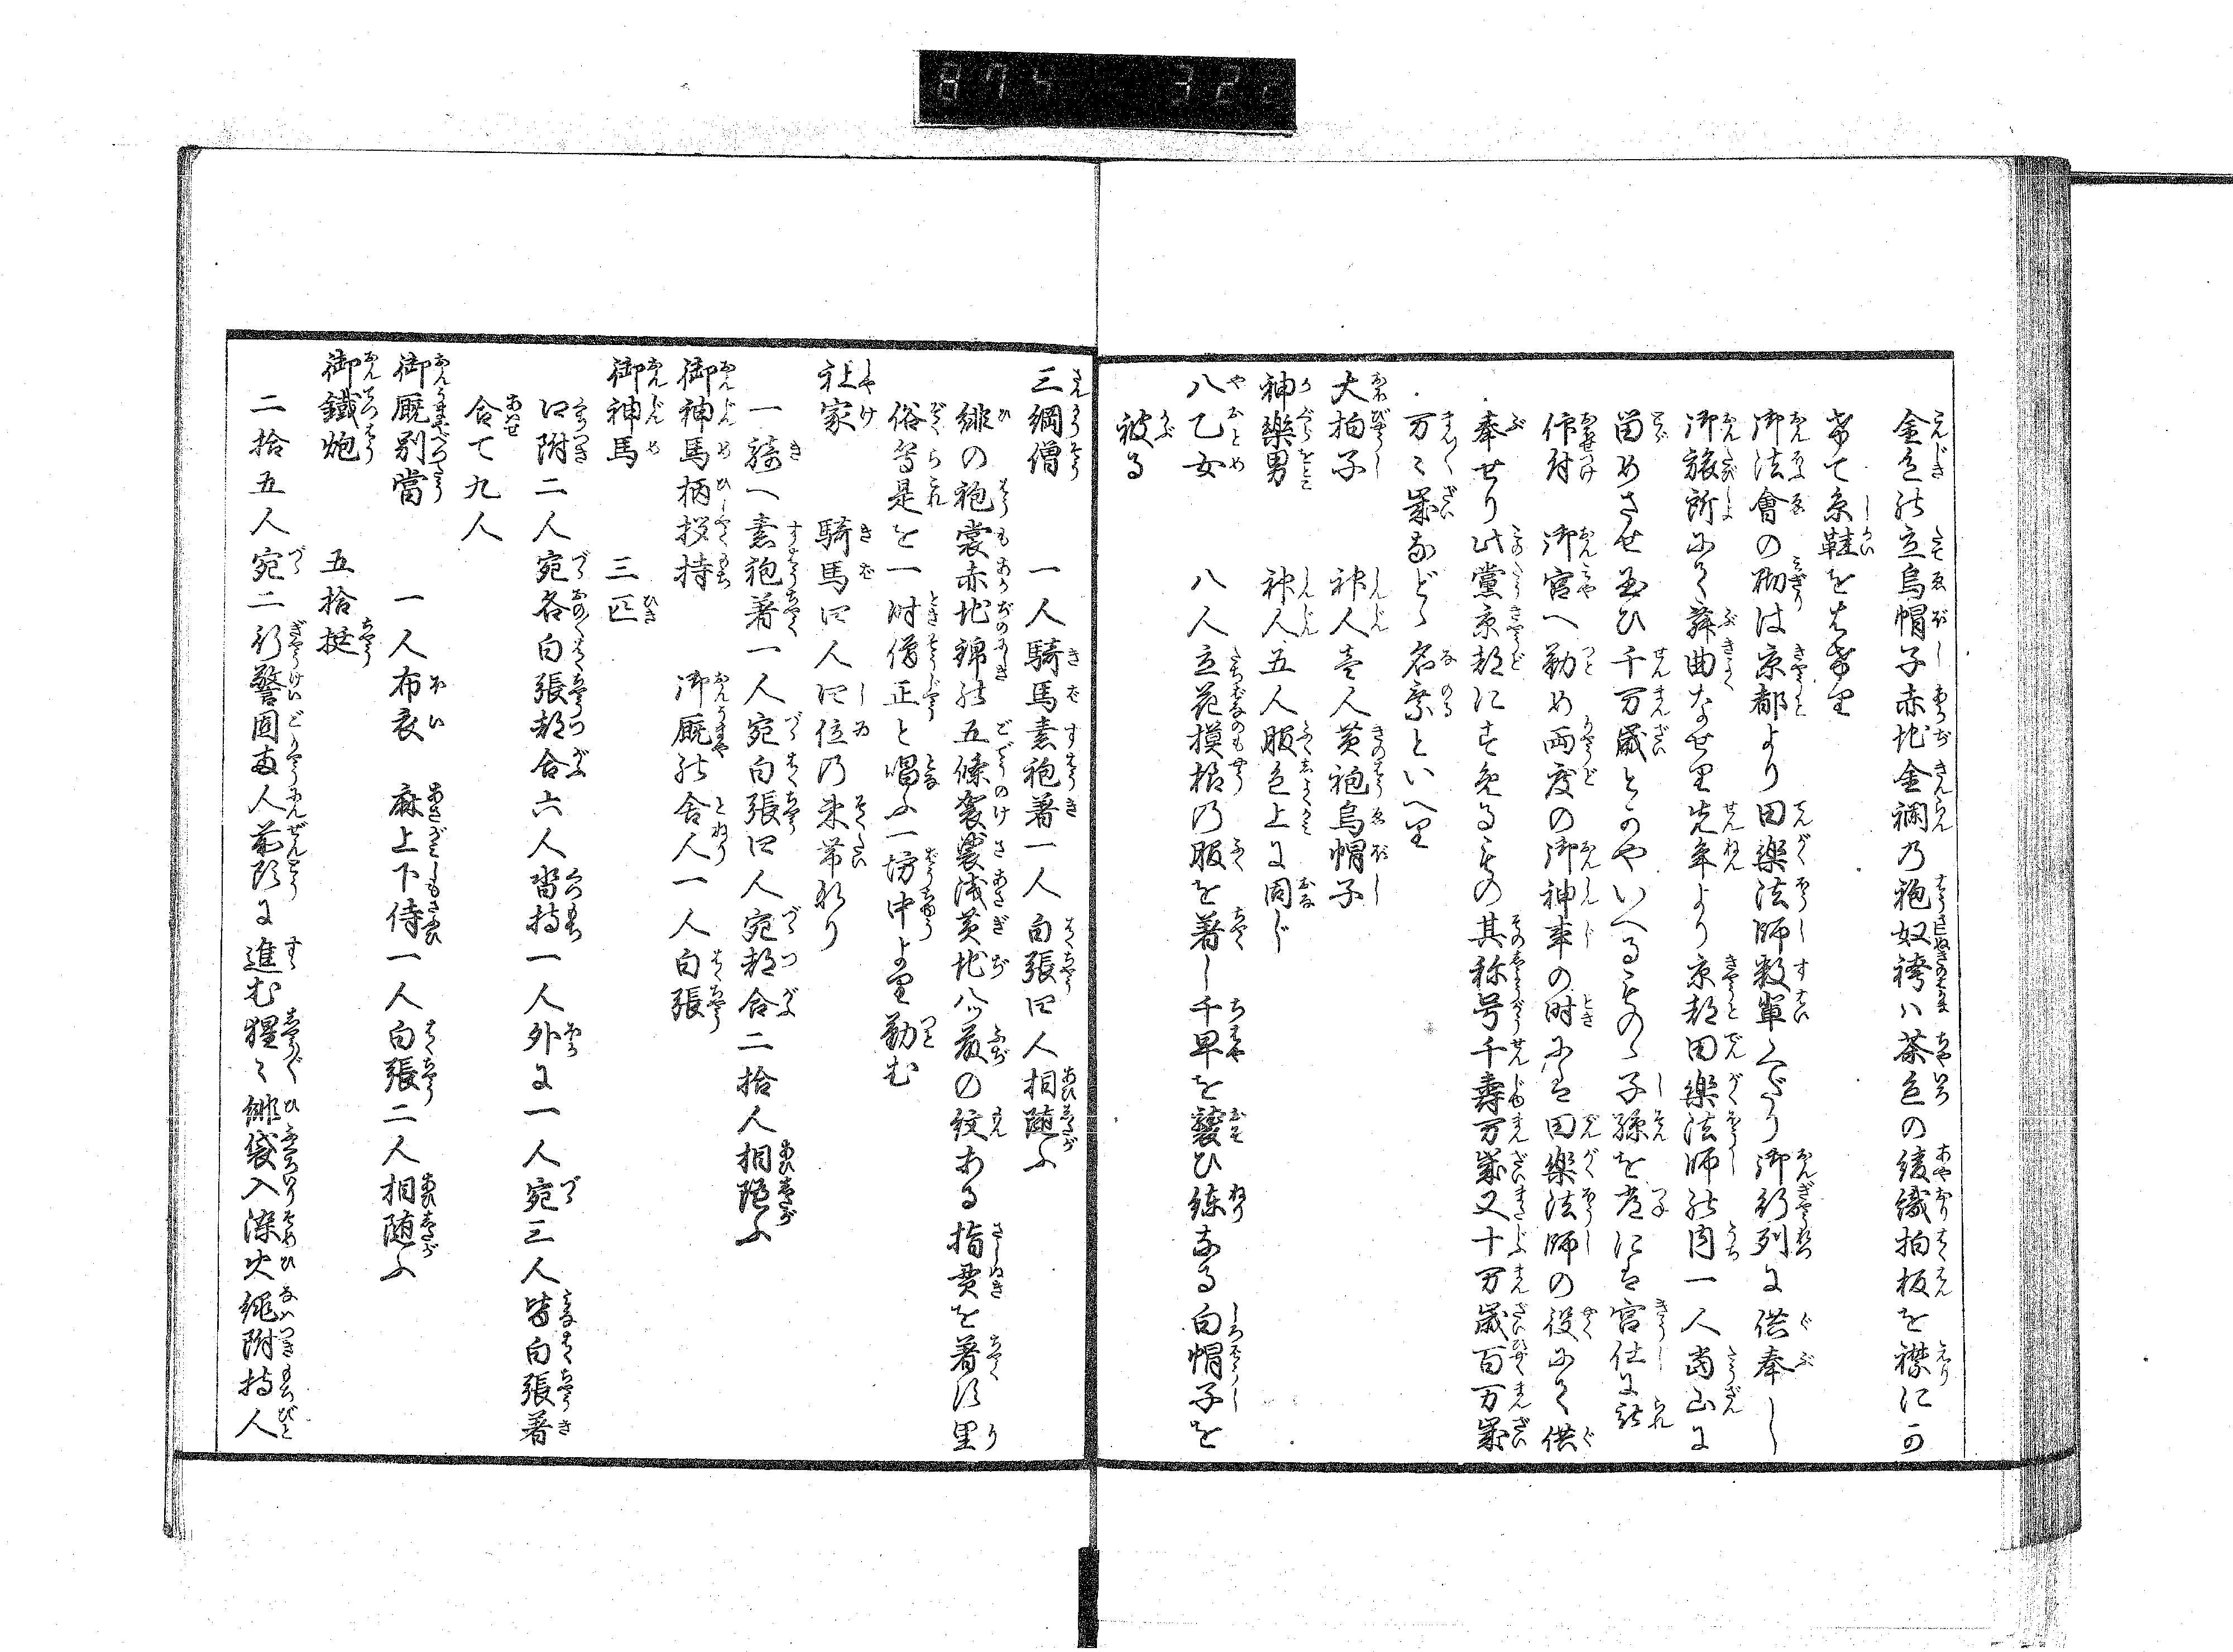 金色の立烏帽子赤地金襴乃袍奴袴ハ茶色の綾織拍板を襟にか
希て糸鞋をはき希里
御法會の砌は京都より田楽法師数輩くだり御行列に供奉し
御旅所にて舞曲なせ里先年より京都田楽法師の内一人當山に
留めさせ玉ひ千万歳とかやいへるものゝ子孫を常には宮仕に
仰付 御宮へ勤め両度の御神事の時には田楽法師の役にて供
奉せり此黨京都にすめるもの其称号千壽万歳又十万歳百万歳
万々歳などゝ名乗といへ里
大拍子 神人壱人黄袍烏帽子
神樂男 神人五人服色上に同じ
八乙女 八人立花模様の服を著し千早を襲ひ練なる白帽子を
被る
三綱僧 一人騎馬素袍著一人白張四人相随ふ
緋の袍裳赤地錦の五條袈裟浅黄地八ッ藤の紋ある指貫を著せ里
俗等是を一时僧正と唱ふ一坊中より勤む
社家 騎馬四人四位の束帯なり
一騎へ素袍著一人宛白張四人宛都合二拾人相随ふ
御神馬柄杓持 御厩の舎人一人白張
御神馬 三疋
口附二人宛各白張都合六人沓持一人外に一人宛三人皆白張著
合て九人
御厩別當 一人布衣 麻上下侍一人白張二人相随ふ
御鐵炮 五拾挺
二拾五人宛二行警固両人前路に進む猩々緋袋入深火縄附持人